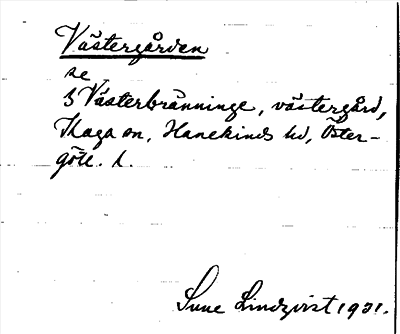 Västergården
se
3 Västerbränninge, västergård,
Skaga sn, Hanekinds hd, Öster-
götl. l.
Sune Lindqvist 1931.